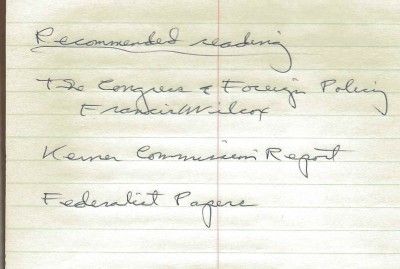 Recommended reading
The Congress & Foreign Policy
Francis Wilcox
Kerner Commission Report
Federalist Papers